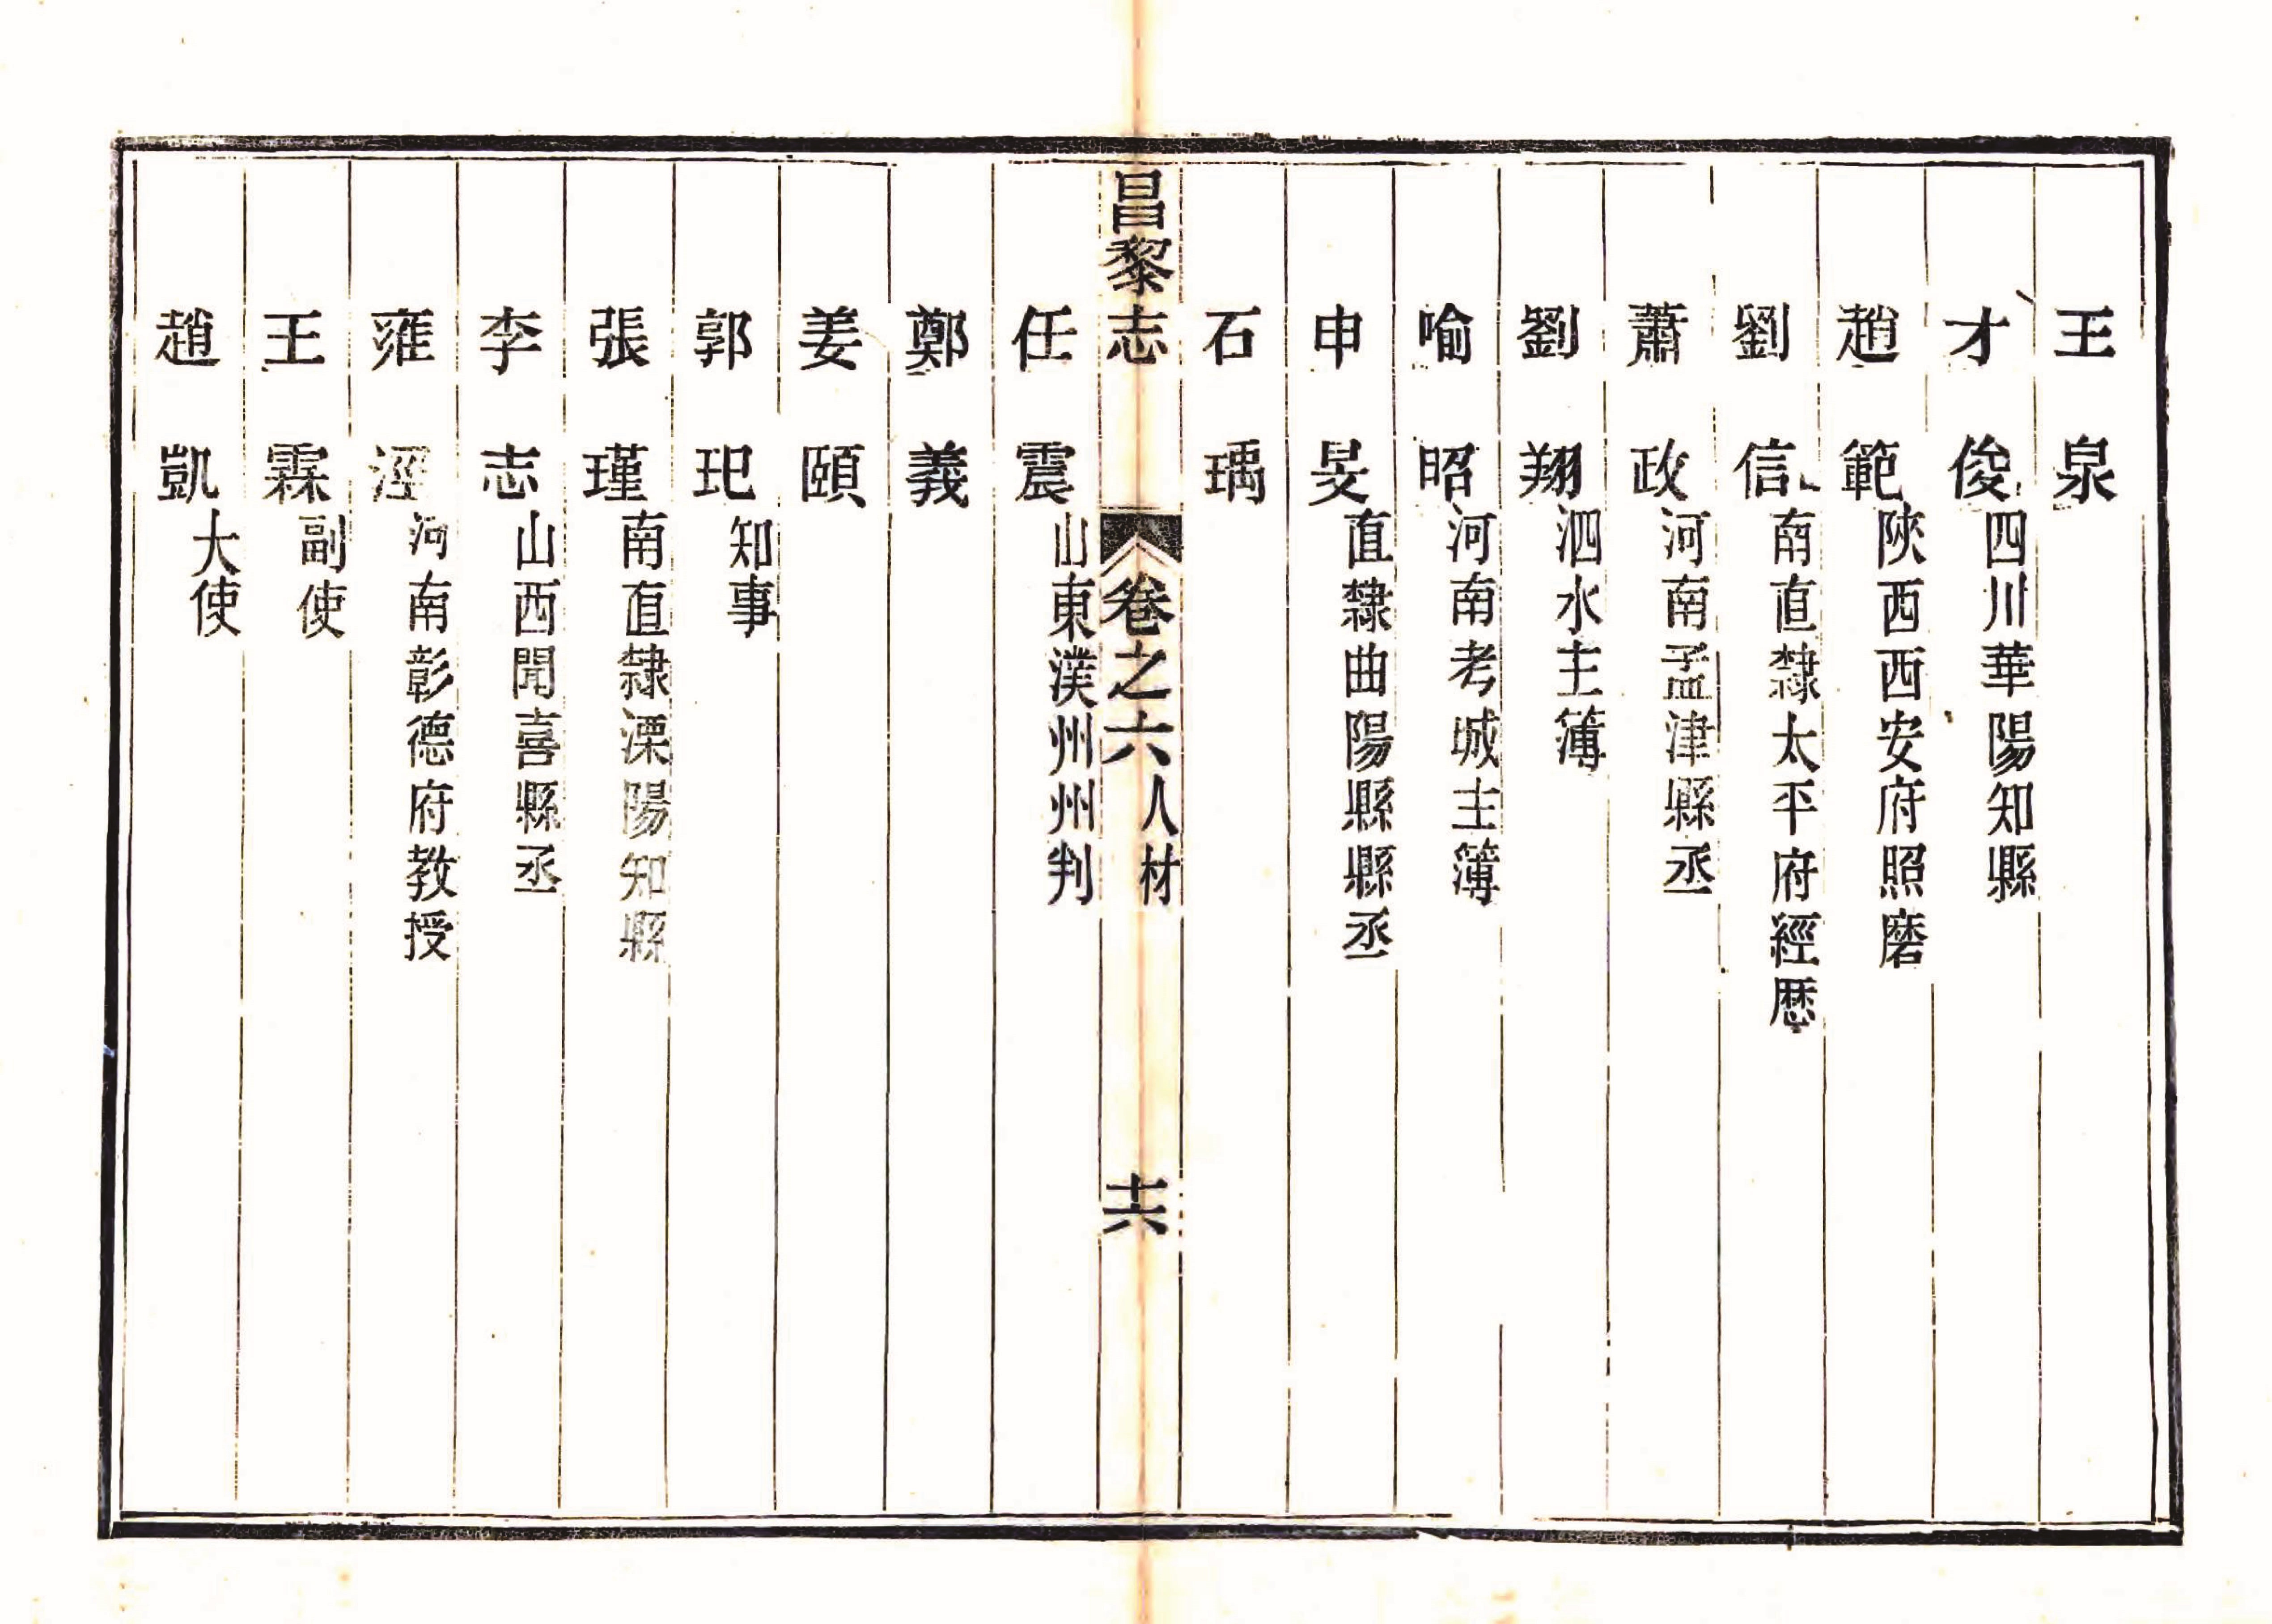 王泉
才俊四川華陽知縣
趙範陜西西安府照磨
劉信南直隸太平府經歷
蕭政河南孟津縣丞
劉翔泗水主簿
喻昭河南考城主簿
申旻直隸曲陽縣縣丞
石瑀
昌黎志 卷之六人材 十六
任震山東濮州州判
鄭義
姜頤
郭玘知事
張瑾南直隸溧陽知縣
李志山西聞喜縣丞
雍涇河南彰德府教授
王霖副使
趙凱大使